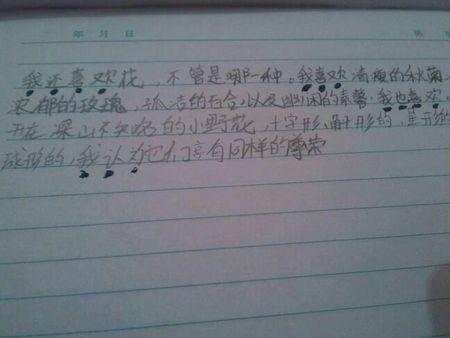 年 月 日 第
我还喜欢花，不管是哪一种。我喜欢清瘦的秋菊，
浓郁的玫瑰，孤洁的百合，以及幽闲的素馨。我也喜欢
开在深山不知名的小野花，十字形、斛形的，星形的
球形的，我认为它们享有同样的尊荣